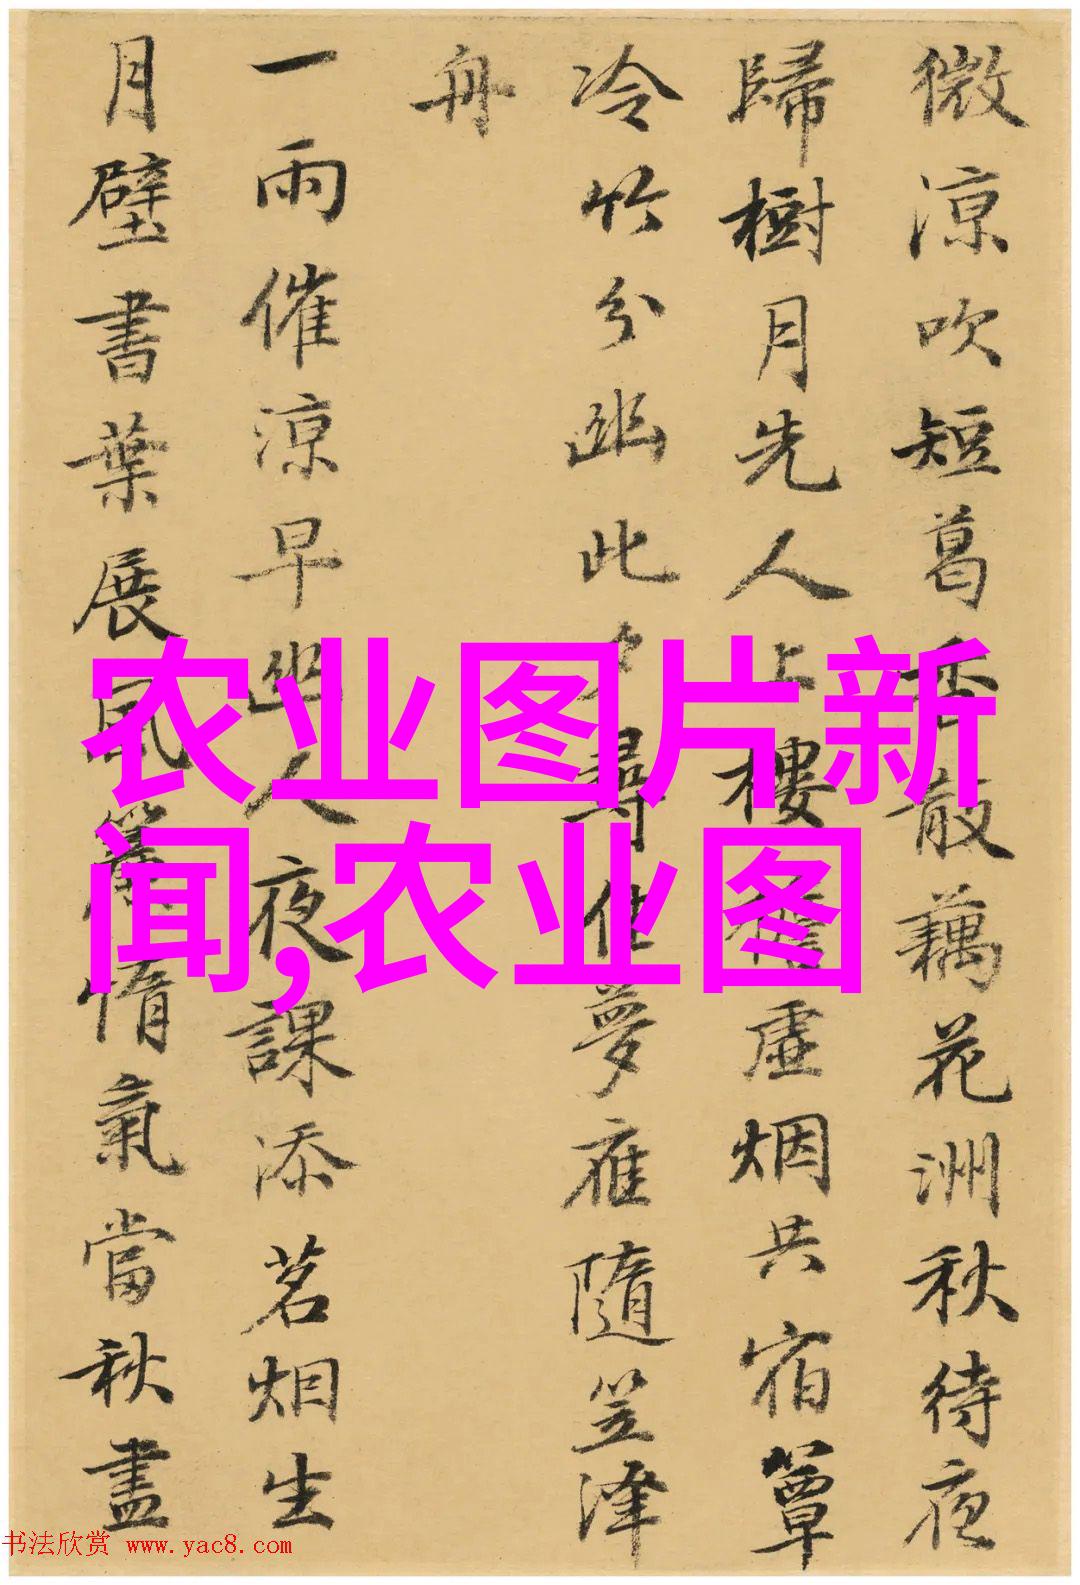 微涼吹短葛香散藕花洲秋待夜
歸樹月先人上樓虛烟共宿簟
冷竹分幽此夕尋佳夢雁隨笠澤
舟
一雨催涼早幽人夜課添茗烟生
月壁書葉展風簾惰氣當秋盡
农业图片新
闻,农业图
书法欣赏 www.yac8.com